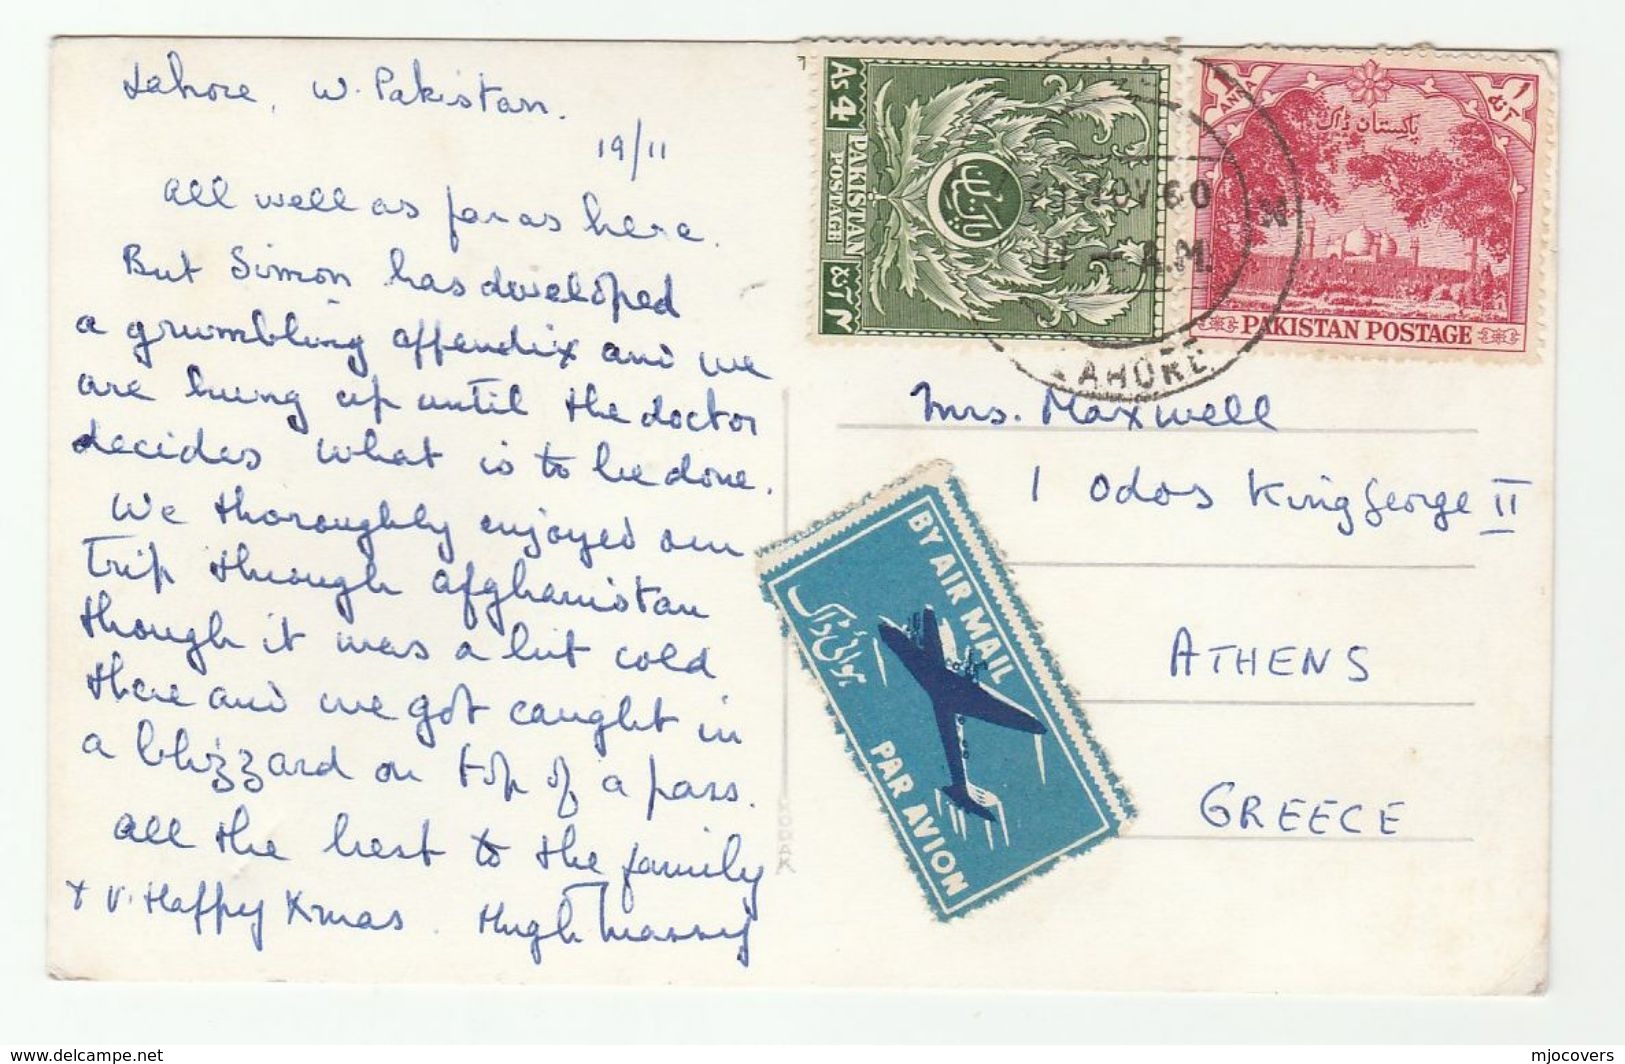 Lahore, W. Pakistan.
19/11
All well as far as here.
But Simon has developed
a grumbling appendix and we
are hung up until the doctor
decides what is to be done.
We thoroughly enjoyed our
trip through Afghanistan
though it was a bit cold
there and we got caught in
a blizzard on top of a pass.
All the best to the family
+ v. Happy Xmas. Hugh
As 4
PAKISTAN
POSTAGE
ANNA 1
پاکستان ڈاک
PAKISTAN POSTAGE
NOV 60
11 - A.M.
LAHORE
BY AIR MAIL
PAR AVION
Mrs. Maxwell
1 Odos King George II
ATHENS
GREECE
KODAK
mjocovers